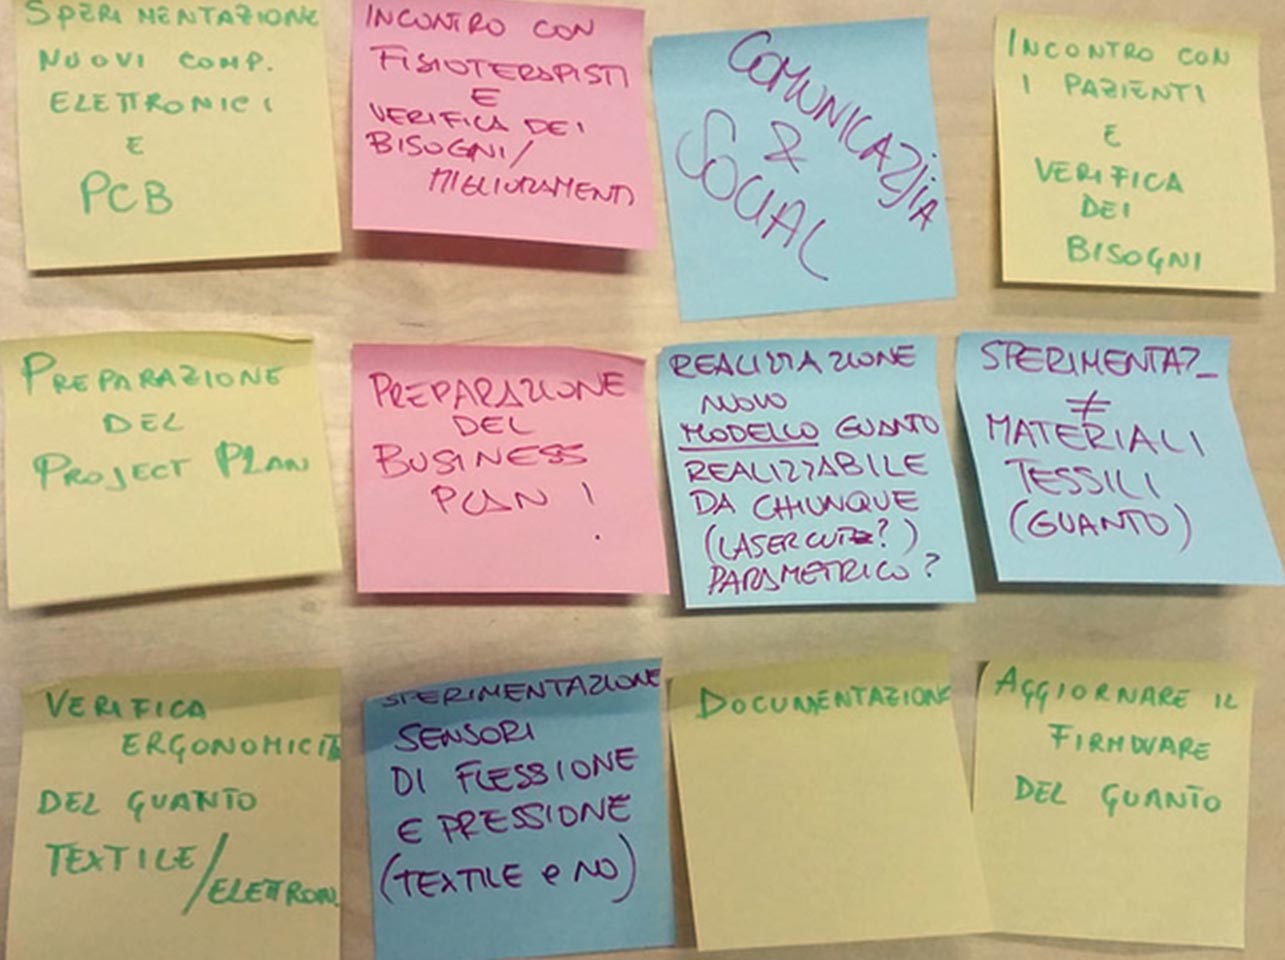 SPERIMENTAZIONE
NUOVI COMP.
ELETTRONICI
E
PCB
INCONTRO CON
FISIOTERAPISTI
E
VERIFICA DEI
BISOGNI/
MIGLIORAMENTI
COMUNICAZIONE
&
SOCIAL
INCONTRO CON
I PAZIENTI
E
VERIFICA
DEI
BISOGNI
PREPARAZIONE
DEL
PROJECT PLAN
PREPARAZIONE
DEL
BUSINESS
PLAN !
REALIZZAZIONE
NUOVO
MODELLO GUANTO
REALIZZABILE
DA CHIUNQUE
(LASERCUT?)
PARAMETRICO?
SPERIMENTAZ_
≠
MATERIALI
TESSILI
(GUANTO)
VERIFICA
ERGONOMICIT
DEL GUANTO
TEXTILE/
ELETTRON.
SPERIMENTAZIONE
SENSORI
DI FLESSIONE
E PRESSIONE
(TEXTILE e NO)
DOCUMENTAZIONE
AGGIORNARE IL
FIRMWARE
DEL GUANTO